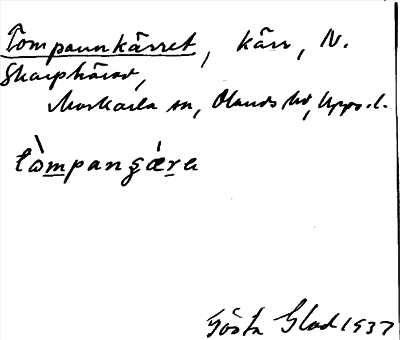 Tompaunkärret, kärr, N.
Skarphärad,
Morkarla sn, Olands hd, Upps. l.
tòmpangǽra
Gösta Glad 1937